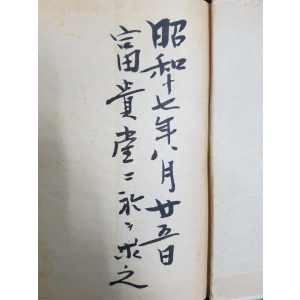 昭和十七年八月廿五日
富貴堂ニ於テ求之